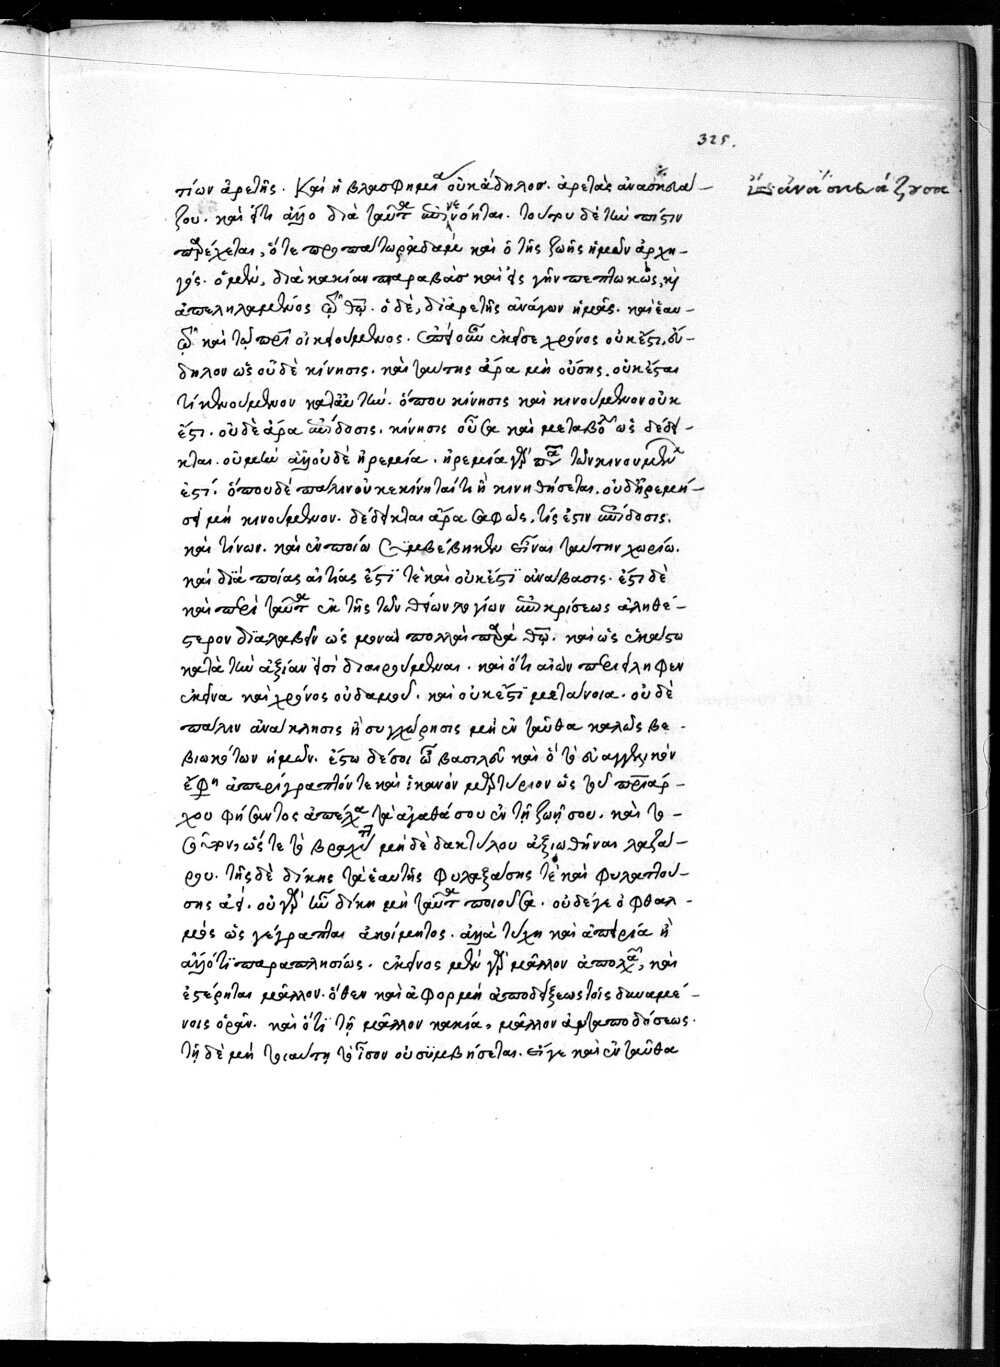 325.
τίων ἀρετῆς. Καὶ ἡ βλασφημία οὐκ ἄδηλος. ἀρετὰς ἀνασκευά-
ζου. καὶ ὅτι διὰ ταῦτα νενόηται. τοῦτον δὲ τὴν πίστιν
παρέχεται, ὅ τε προπάτωρ ἀδὰμ καὶ ὁ τῆς ζωῆς ἡμῶν ἀρχη-
γός. ὁ μὲν, διὰ κακίαν παραβὰς καὶ εἰς γῆν πεπτωκὼς, καὶ
ἀπεληλαμένος θεοῦ. ὁ δὲ, δι' ἀρετῆς ἀνάγων ἡμᾶς. καὶ ἑαυ-
τῷ καὶ τῷ πατρὶ οἰκειούμενος. ἐκεῖσε χρόνος οὐκ ἔστι, εὔ-
δηλον ὡς οὐδὲ κίνησις. καὶ ταύτης ἄρα μὴ οὔσης. οὐκ ἔσται
τι κινούμενον κατ' αὐτήν. ὅπου κίνησις καὶ κινούμενον οὐκ
ἔστι. οὐδὲ ἄρα ἀπόδοσις. κίνησις οὖσα καὶ μεταβολὴ ὡς δέδει-
κται. οὐ μὴν ἀλλ' οὐδὲ ἠρεμία. ἠρεμία γὰρ τῶν κινουμένων
ἐστί. ὅπου δὲ πάλιν οὐ κεκίνηταί τι ἢ κινηθήσεται. οὐδ' ἠρεμή-
σει μὴ κινούμενον. δέδεικται ἄρα σαφῶς, τίς ἐστιν ἀπόδοσις.
καὶ τίνων. καὶ ἐν ποίῳ συμβέβηκεν εἶναι ταύτην χωρίῳ.
καὶ διὰ ποίας αἰτίας ἔστι τε καὶ οὐκ ἔστι ἀνάβασις. ἔστι δὲ
καὶ περὶ ταῦτα ἐκ τῆς τῶν θείων λογίων ἀποκρίσεως ἀληθέ-
στερον διαλαβεῖν ὡς μοναὶ πολλαὶ παρὰ θεῷ. καὶ ὡς ἑκάστῳ
κατὰ τὴν ἀξίαν εἰσὶ διαιρούμεναι. καὶ ὅτι αἰὼν περιείληφεν
ἐκεῖνα καὶ χρόνος οὐδαμοῦ. καὶ οὐκ ἔστι μετάνοια. οὐδὲ
πάλιν ἀνάκλησις ἢ συγχώρησις μὴ ἐνταῦθα καλῶς βε-
βιωκότων ἡμῶν. ἔστω δέ σοι ὦ βασιλεῦ καὶ ὃ τὸ εὐαγγελικὸν
ἔφη ἀπερίγραπτόν τε καὶ ἱκανὸν μαρτύριον ὡς τοῦ πατριάρ-
χου φήσαντος ἀπέχεις τὰ ἀγαθά σου ἐν τῇ ζωῇ σου. καὶ το-
σοῦτον, ὥστε τὸ βραχὺ μηδὲ δακτύλου ἀξιωθῆναι λαζά-
ρου. τῆς δὲ δίκης τὰ ἑαυτῆς φυλαξάσης τὲ καὶ φυλαττού-
σης ἀεί. οὐ γὰρ ἦν δίκη μὴ ταῦτα ποιοῦσα. οὐδέ γε ὀφθαλ-
μὸς ὡς γέγραπται ἀκοίμητος. ἀλλὰ τύχη καὶ ἀπορία ἢ
ἄλλό τι παραπλησίως. ἐκεῖνος μὲν γὰρ μᾶλλον ἀπολαύει, καὶ
ἐστέρηται μᾶλλον. ὅθεν καὶ ἀφορμὴ ἀποδείξεως τοῖς δυναμέ-
νοις ὁρᾶν. καὶ ὅτι τῇ μᾶλλον κακίᾳ, μᾶλλον ἀνταποδόσεως.
τῇ δὲ μὴ τοιαύτῃ τὸ ἴσον οὐ συμβήσεται. εἴγε καὶ ἐνταῦθα